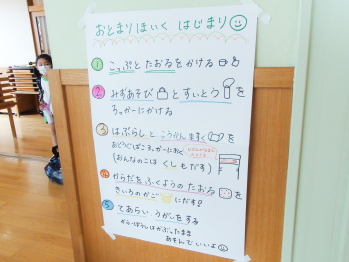 おとまりほいく はじまり
① こっぷとたおるをかける
② みずあそび と すいとう を
ろっかーにかける
③ はぶらし と こうかんますく を
おどうぐばこ ろっかーにおく
(おんなのこは くしもだす)
④ からだをふくようのたおる を
きいろのかご にだす
⑤ てあらい うがいをする
からーぼうしはかぶったまま
あそんでいいよ